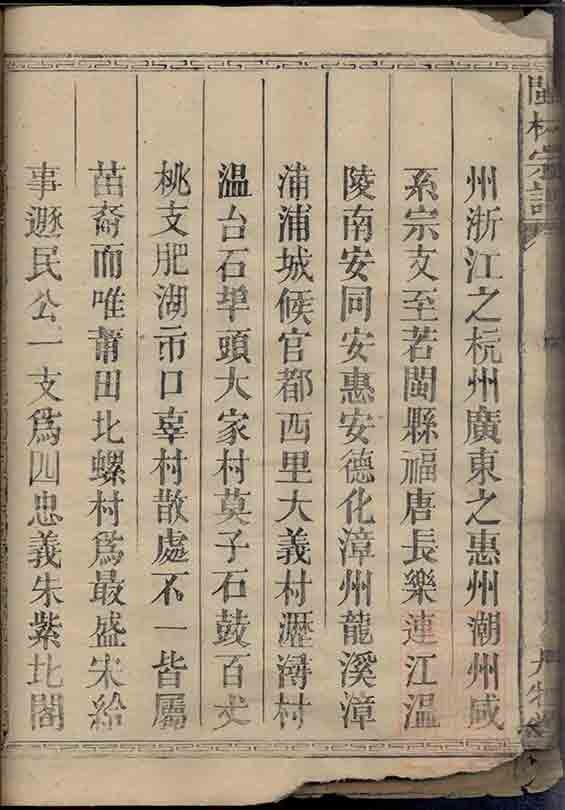 閩林宗譜
州浙江之杭州廣東之惠州潮州咸
系宗支至若閩縣福唐長樂連江溫
陵南安同安惠安德化漳州龍溪漳
浦浦城候官都西里大義村瀝潯村
溫台石埠頭大家村莫子石鼓百丈
桃支肥湖市口辜村散處不一皆屬
苗裔而唯莆田北螺村爲最盛宋給
事遯民公一支爲四忠義朱紫北閣